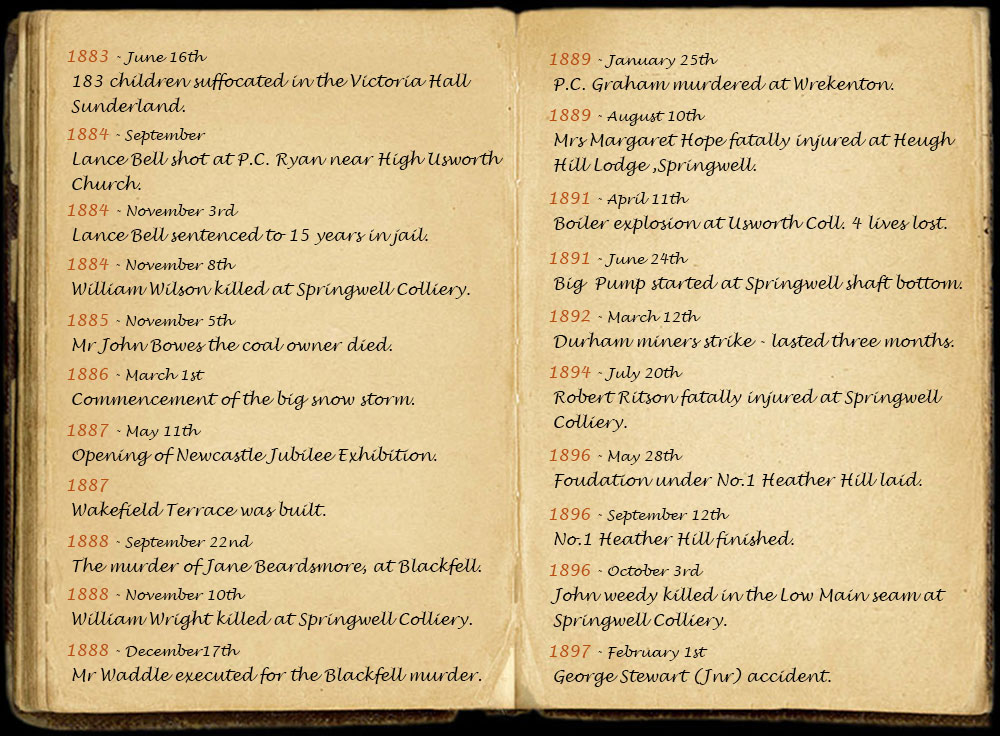 1883 - June 16th
183 children suffocated in the Victoria Hall
Sunderland.
1884 - September
Lance Bell shot at P.C. Ryan near High Usworth
Church.
1884 - November 3rd
Lance Bell sentenced to 15 years in jail.
1884 - November 8th
William Wilson killed at Springwell Colliery.
1885 - November 5th
Mr John Bowes the coal owner died.
1886 - March 1st
Commencement of the big snow storm.
1887 - May 11th
Opening of Newcastle Jubilee Exhibition.
1887
Wakefield Terrace was built.
1888 - September 22nd
The murder of Jane Beardsmore, at Blackfell.
1888 - November 10th
William Wright killed at Springwell Colliery.
1888 - December17th
Mr Waddle executed for the Blackfell murder.
1889 - January 25th
P.C. Graham murdered at Wrekenton.
1889 - August 10th
Mrs Margaret Hope fatally injured at Heugh
Hill Lodge ,Springwell.
1891 - April 11th
Boiler explosion at Usworth Coll. 4 lives lost.
1891 - June 24th
Big Pump started at Springwell shaft bottom.
1892 - March 12th
Durham miners strike - lasted three months.
1894 - July 20th
Robert Ritson fatally injured at Springwell
Colliery.
1896 - May 28th
Foudation under No.1 Heather Hill laid.
1896 - September 12th
No.1 Heather Hill finished.
1896 - October 3rd
John weedy killed in the Low Main seam at
Springwell Colliery.
1897 - February 1st
George Stewart (Jnr) accident.